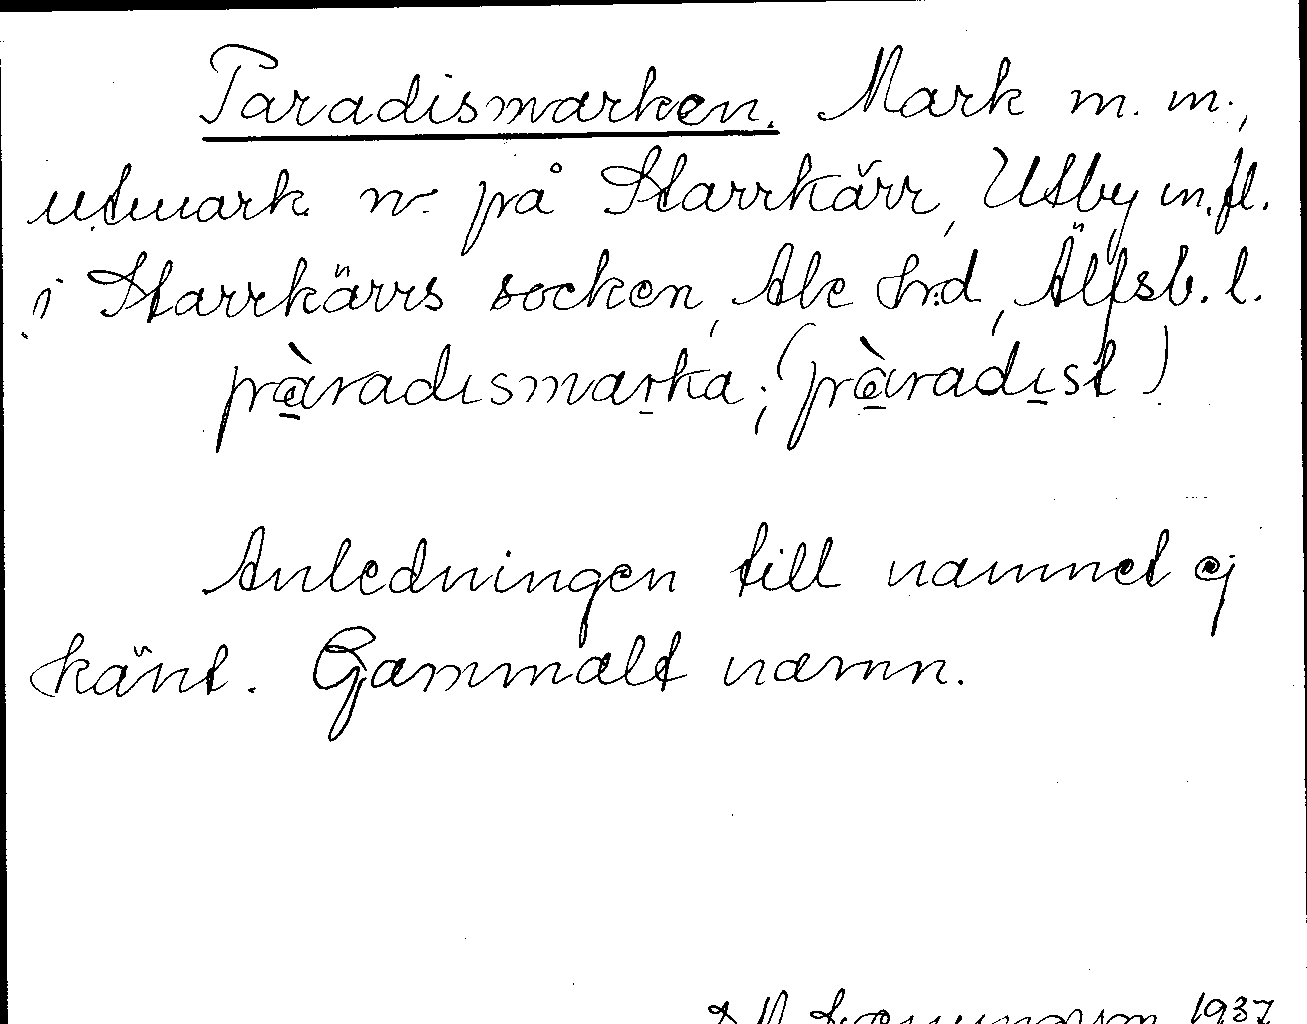 Paradismarken. Mark m. m.,
utmark n. på Starrkärr, Utby m.fl.
i Starrkärrs socken, Ale h:d, Älfsb. l.
pàradısmarka; (pàradıst)
Anledningen till namnet ej
känt. Gammalt namn.
1937